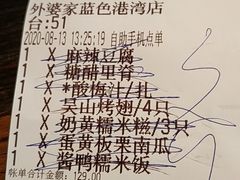 外婆家蓝色港湾店
台:51
2020-08-13 13:25:19 自助手机点单
1 X 麻辣豆腐
1 X 糖醋里脊
1 X *酸梅汁/扎
1 X 吴山烤翅/4只
1 X 奶黄糯米糍/3只
1 X 蛋黄板栗南瓜
1 X 酱鸭糯米饭
账单合计金额: 129.00